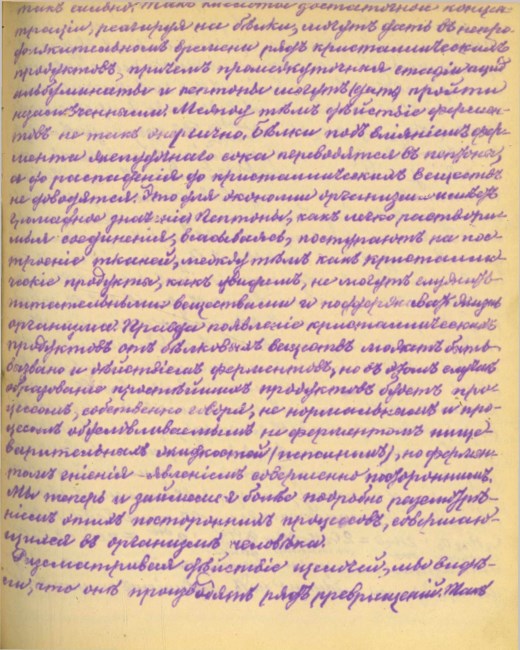 такъ сильно. Такъ кислоты достаточной концен-
траціи, реагируя на бѣлки, могутъ дать въ непро-
должительномъ времени рядъ кристаллическихъ
продуктовъ, причемъ промежуточныя стадіи аци-
альбуминаты и пептоны могутъ пройти
незамѣченными. Между тѣмъ дѣйствіе фермен-
товъ не такъ энергично. Бѣлки подъ вліяніемъ фер-
мента желудочнаго сока переводятся въ пептоны,
а до распаденія до кристаллическихъ веществъ
не доводятся. Это для экономіи организма имѣетъ
громадное значеніе. Пептоны, какъ легко раствори-
мыя соединенія, всасываясь, поступаютъ на пос-
троеніе тканей, между тѣмъ какъ кристалли-
ческіе продукты, какъ увидимъ, не могутъ служить
питательными веществами и поддерживать жизнь
организма. Правда появленіе кристаллическихъ
продуктовъ отъ бѣлковыхъ веществъ можетъ быть
вызвано и дѣйствіемъ ферментовъ, но въ этомъ случаѣ
образованіе простѣйшихъ продуктовъ будетъ про-
цессомъ, собственно говоря, не нормальнымъ и про-
цессомъ обусловливаемымъ не ферментомъ пище-
варительныхъ жидкостей, но фермен-
томъ гніенія - явленіемъ совершенно постороннимъ.
Мы теперь и займемся болѣе подробно разсмотрѣ-
ніемъ этихъ постороннихъ процессовъ, совершаю-
щихся въ организмѣ человѣка.
Разсматривая дѣйствіе щелочей, мы видѣ-
ли, что онѣ производятъ рядъ превращеній. Такъ